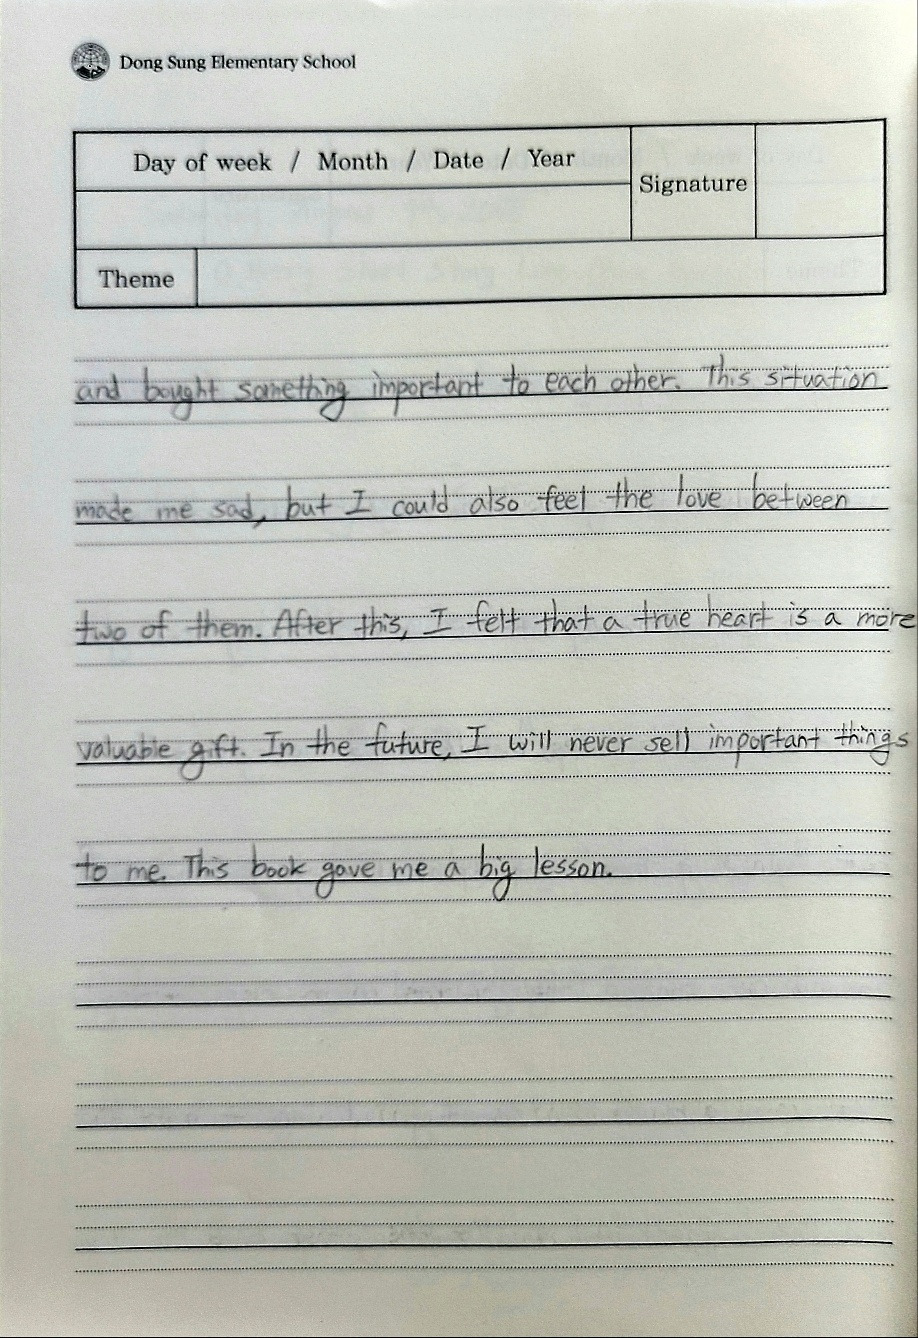 Dong Sung Elementary School
Day of week / Month / Date / Year
Signature
Theme
and bought something important to each other. This situation
made me sad, but I could also feel the love between
two of them. After this, I felt that a true heart is a more
valuable gift. In the future, I will never sell important things
to me. This book gave me a big lesson.